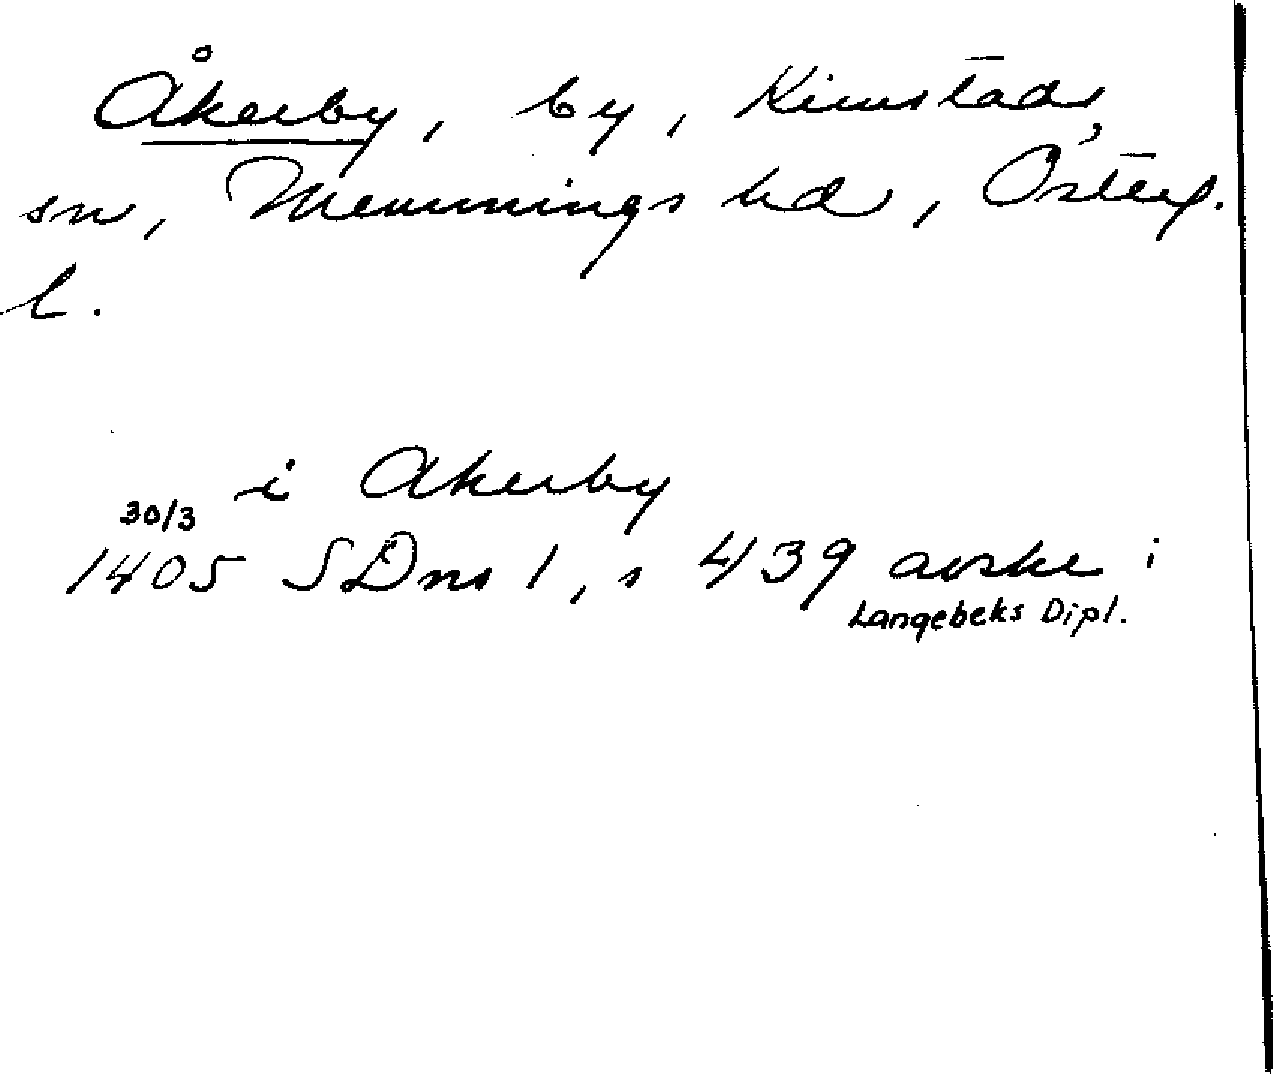 Åkerby, by, Kimstads
sn, Memmings hd, Österg.
l.
i Akerby
30/3
1405 SDns 1, s 439 avskr i
Langebeks Dipl.